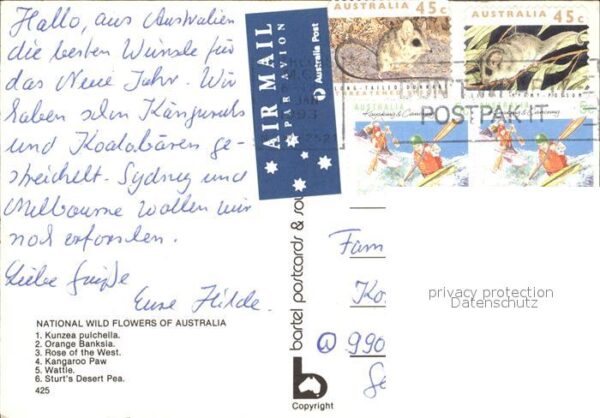 Hallo, aus Australien
die besten Wünsche für
das Neue Jahr. Wir
haben schon Känguruhs
und Koalabären ge-
streichelt. Sydney und
Melbourne wollen wir
noch erforschen.
Liebe Grüße
Eure Hilde.
NATIONAL WILD FLOWERS OF AUSTRALIA
1. Kunzea pulchella.
2. Orange Banksia.
3. Rose of the West.
4. Kangaroo Paw
5. Wattle.
6. Sturt's Desert Pea.
425
AIR MAIL
PAR AVION
Australia Post
AUSTRALIA 45c
AUSTRALIA 45c
AUSTRALIA
POSTPAK IT
bartel postcards & sou
Copyright
Fam
Ko
990
privacy protection
Datenschutz